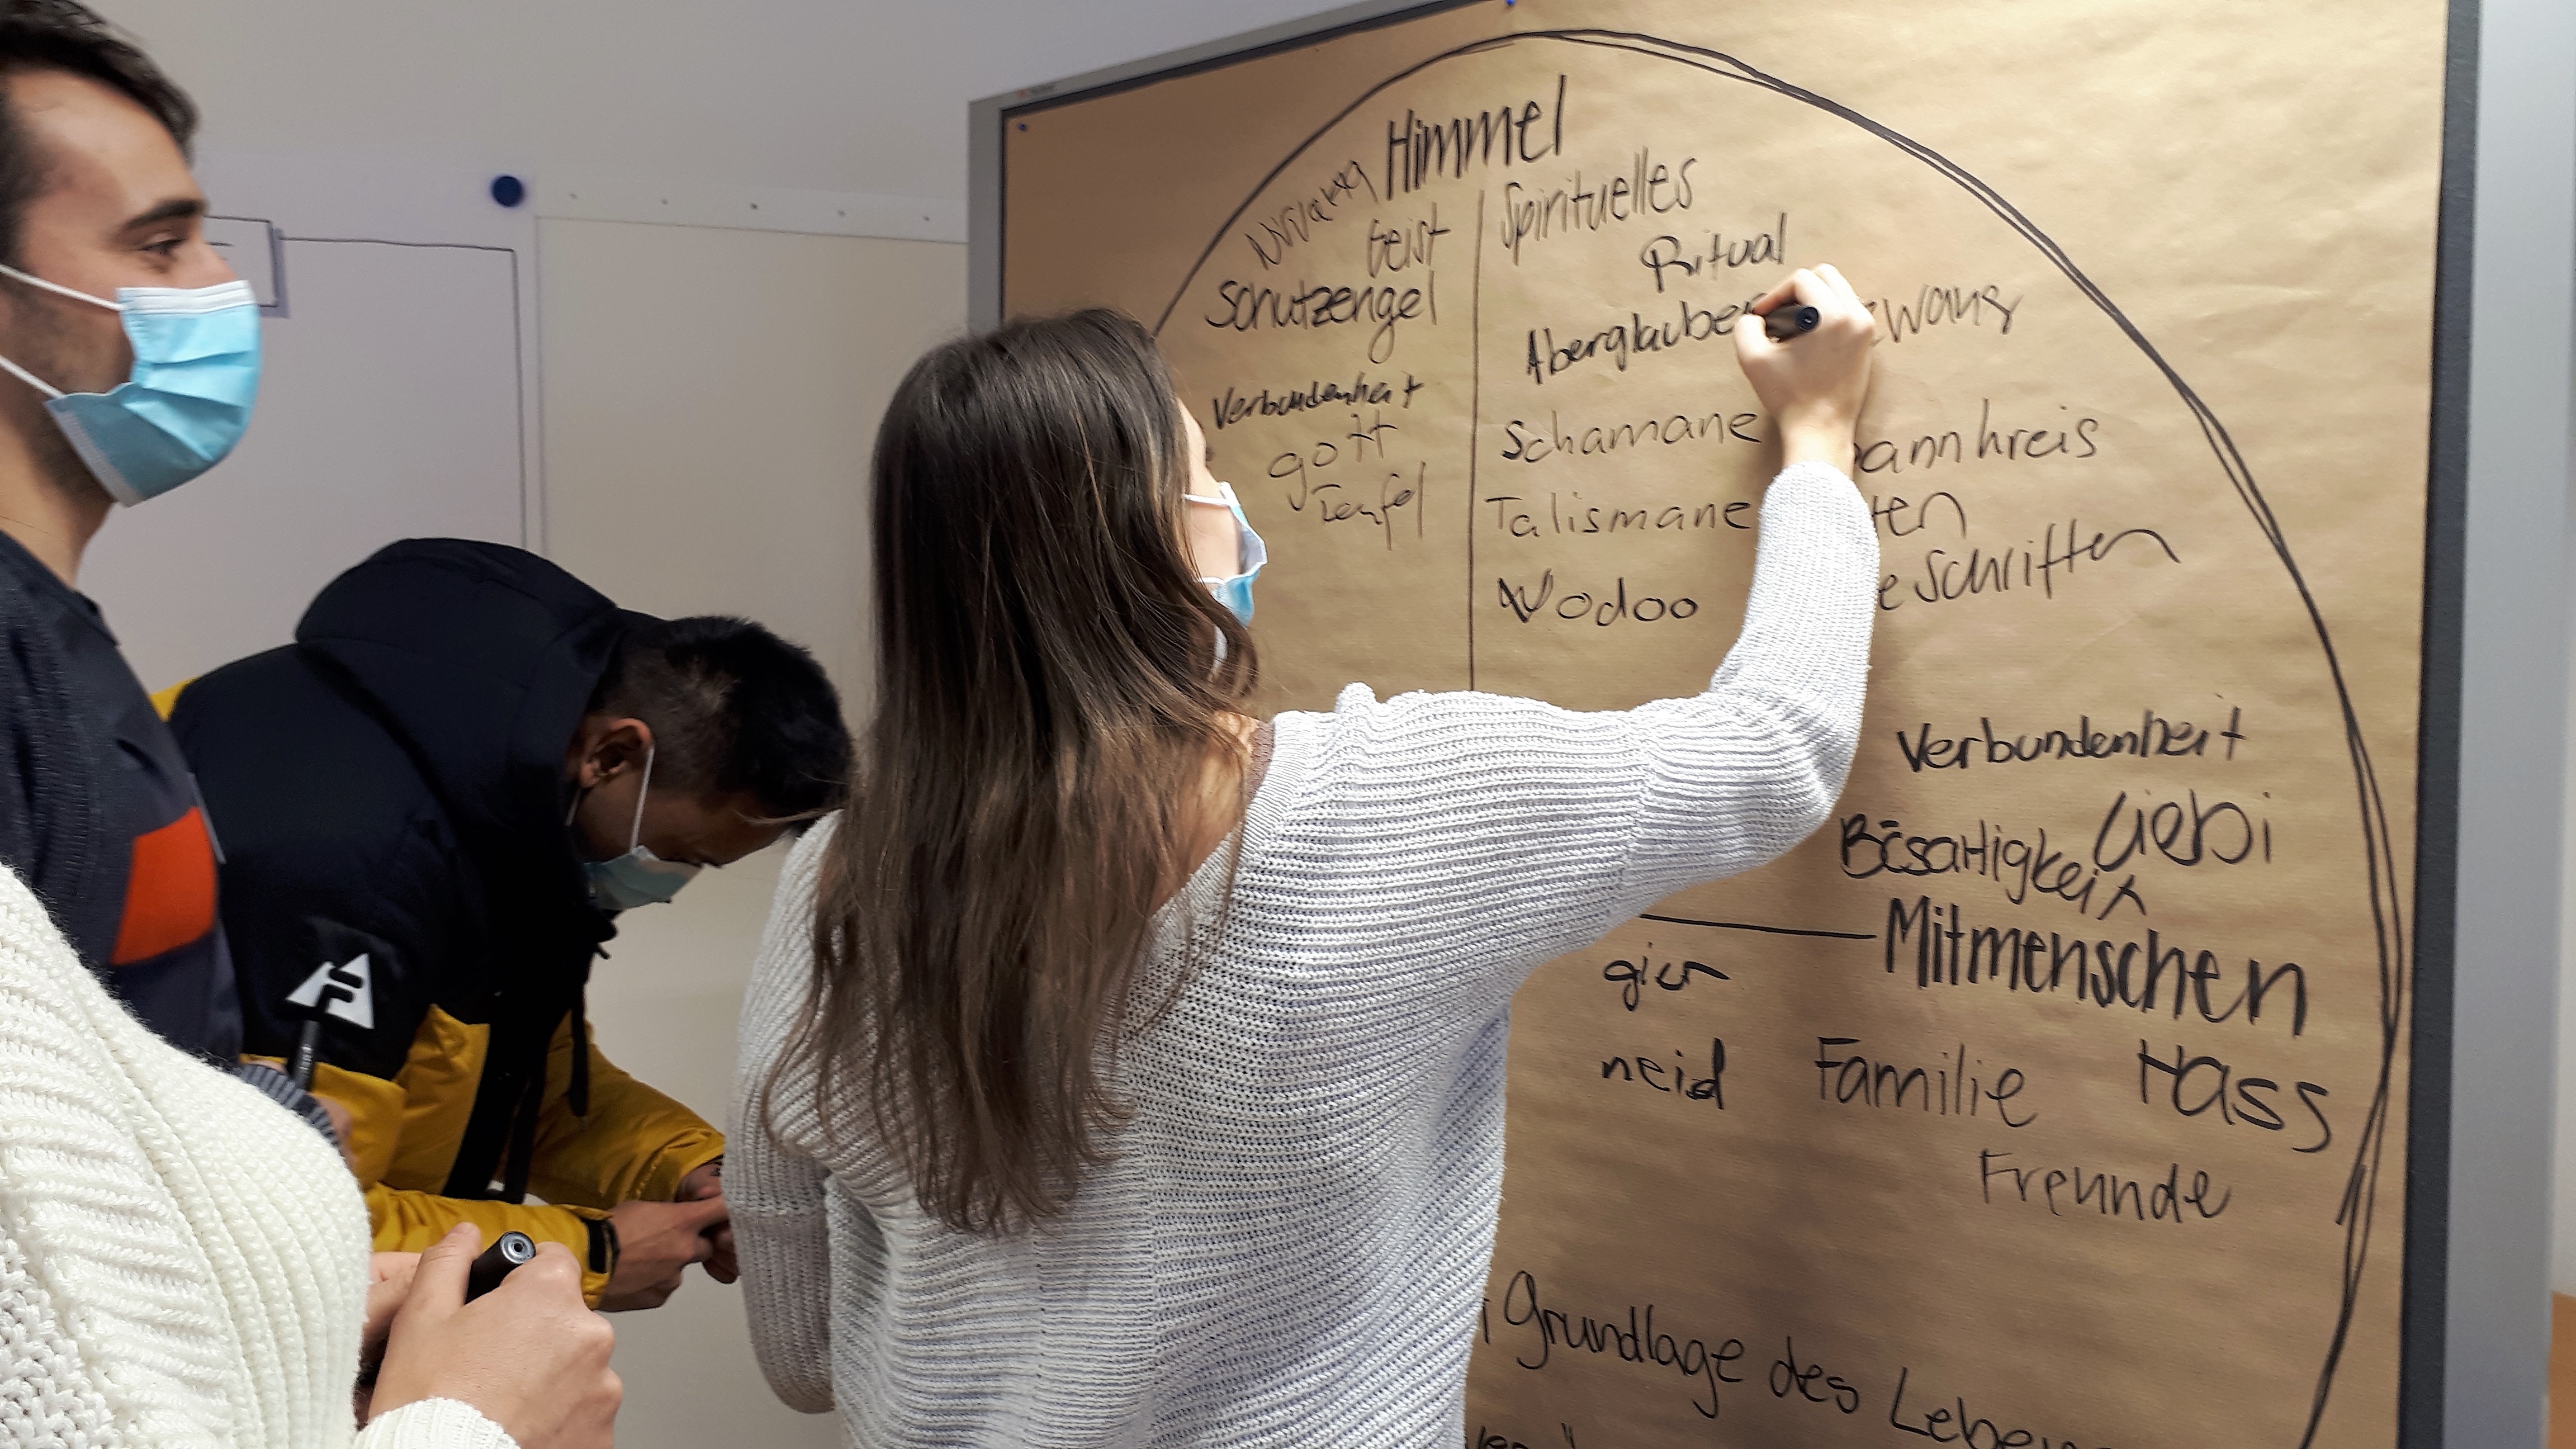 Himmel
Geist
Schutzengel
Verbundenheit
gott
Teufel
Spirituelles
Ritual
Aberglauben
Schamane
Talismane
Wodoo
Schriften
Verbundenheit
Liebi
Bösartigkeit
Mitmenschen
gier
neid Familie Hass
Freunde
Grundlage des Lebens